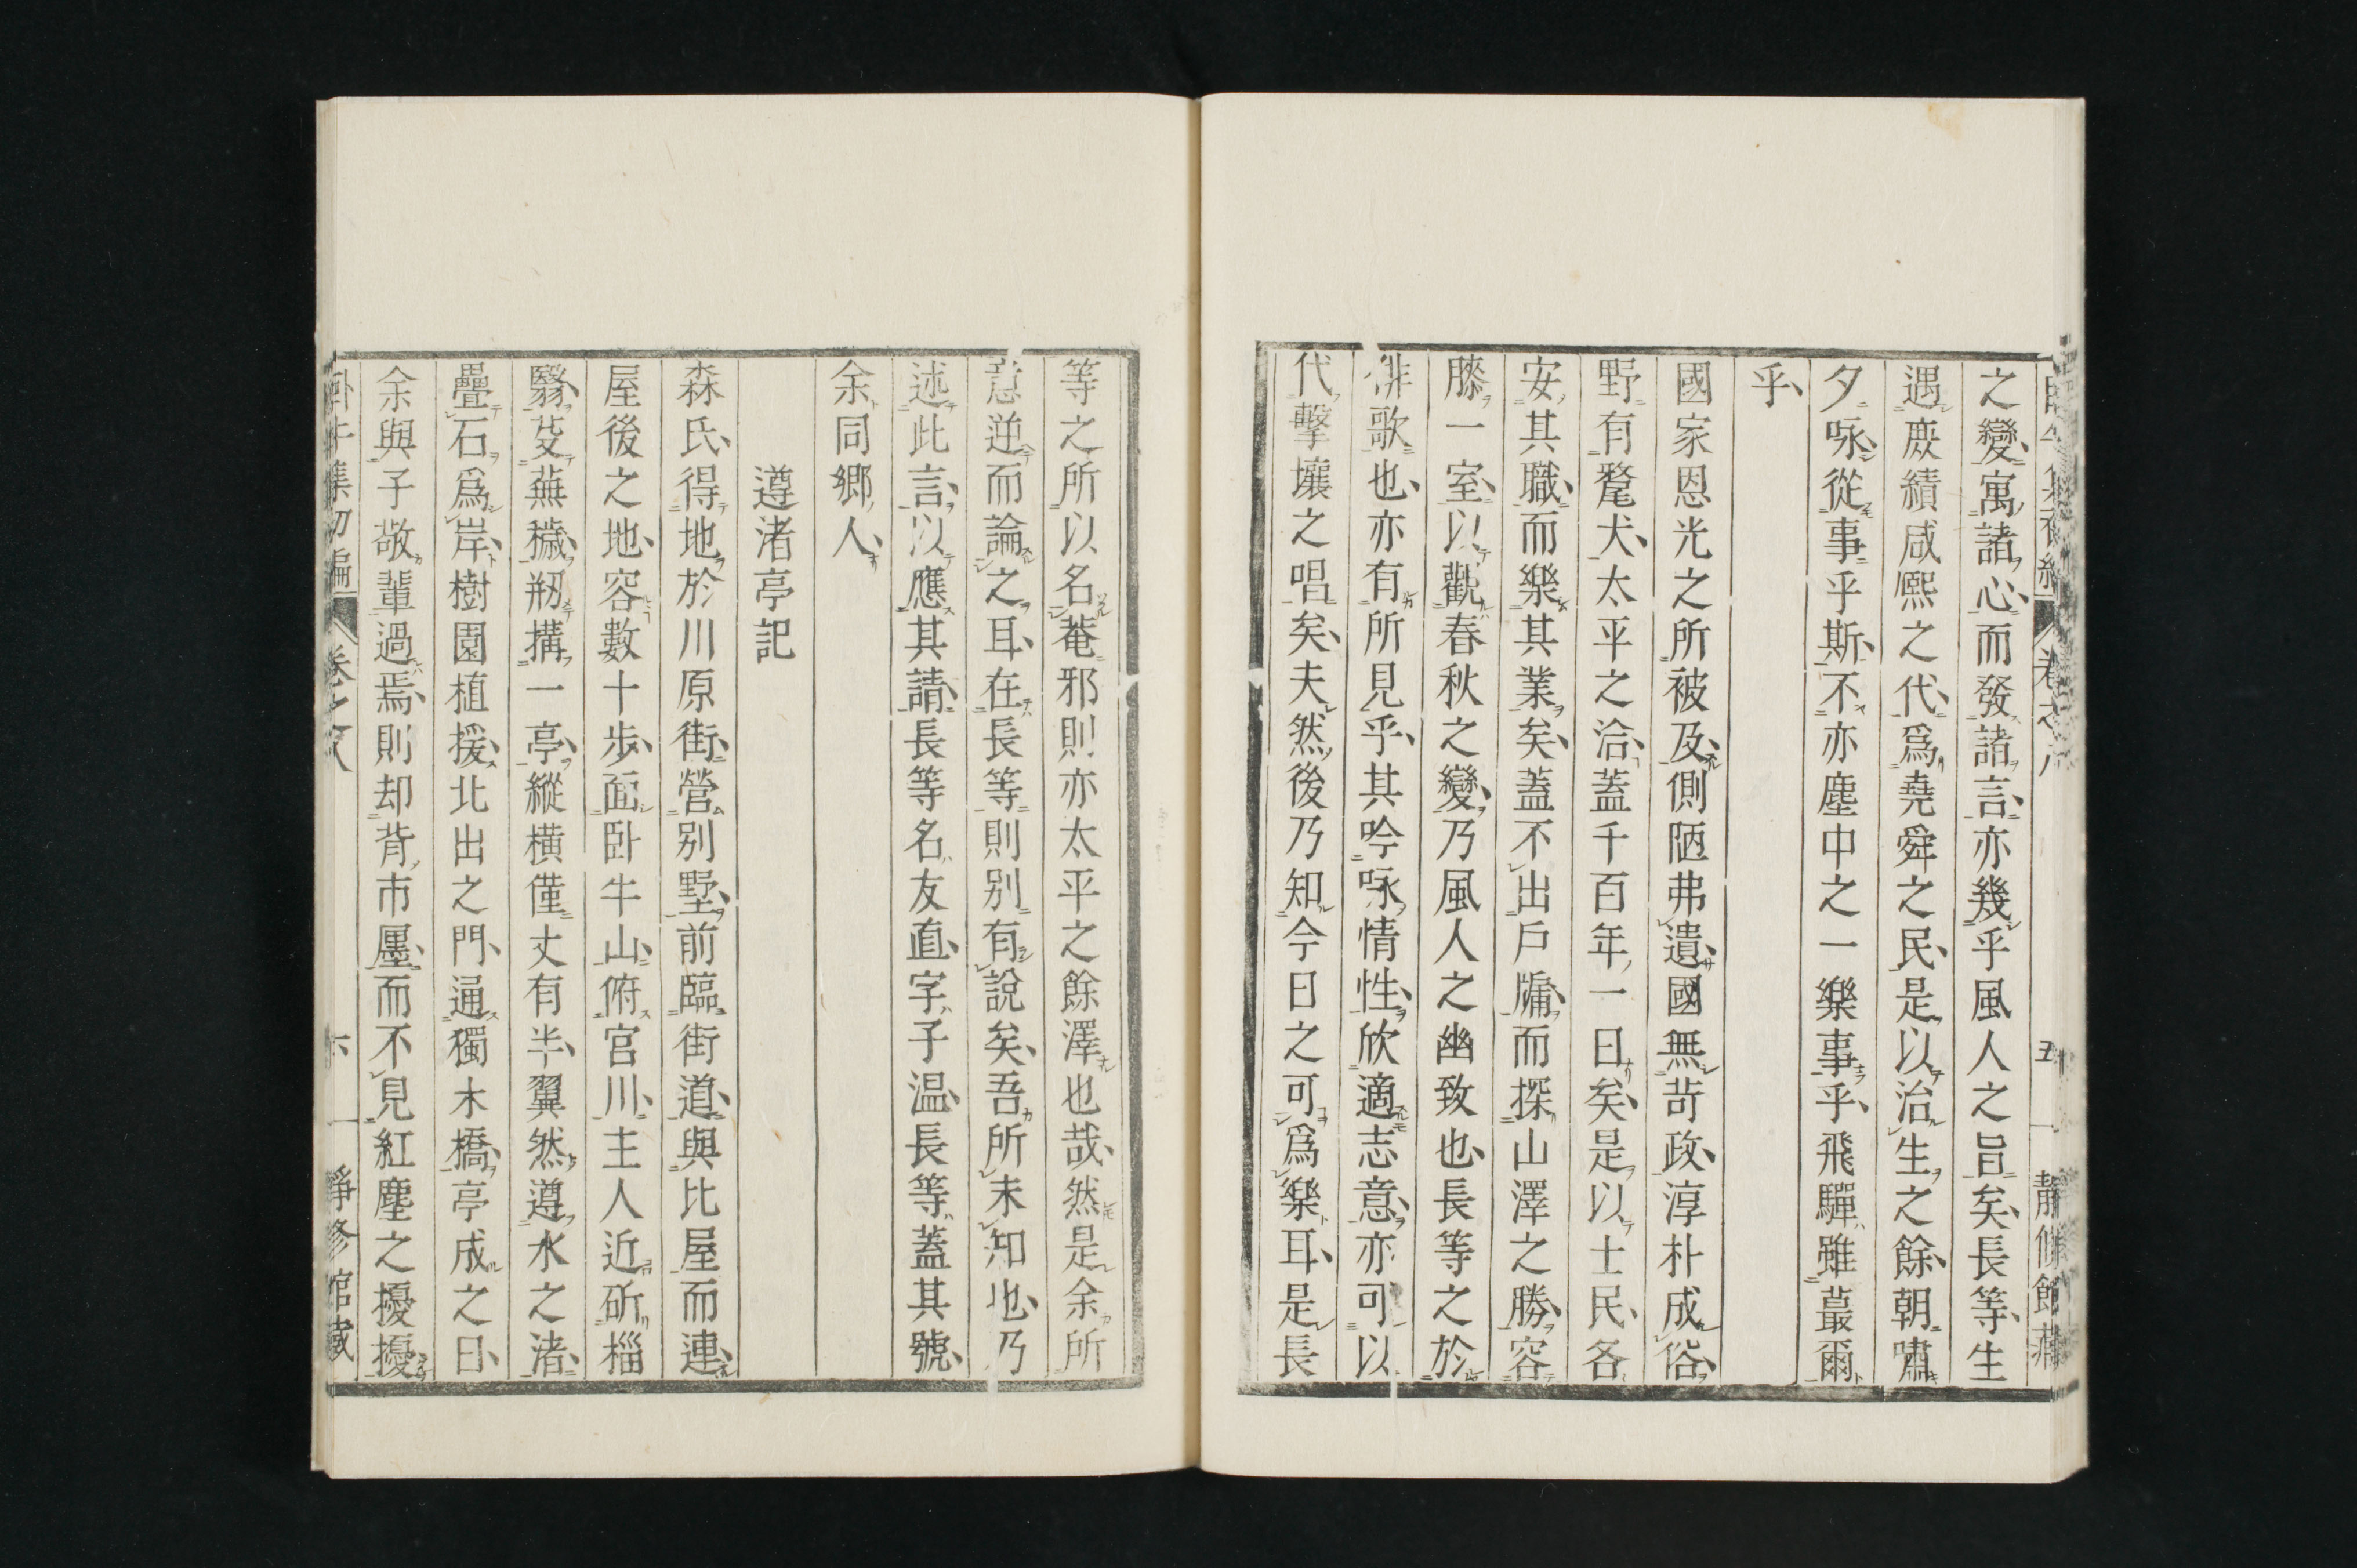 之變寓諸心而發諸言亦幾乎風人之旨矣長等生
遇庶績咸熙之代爲堯舜之民是以治生之餘朝嘯
夕咏從事乎斯不亦塵中之一樂事乎飛驒雖蕞爾
乎
國家恩光之所被及側陋弗遺國無苛政淳朴成俗
野有氂犬太平之洽蓋千百年一日矣是以士民各
安其職而樂其業矣蓋不出戶牖而探山澤之勝容
膝一室以觀春秋之變乃風人之幽致也長等之於
俳歌也亦有所見乎其吟咏情性欣適志意亦可以
代擊壤之唱矣夫然後乃知今日之可爲樂耳是長
等之所以名菴邪則亦太平之餘澤也哉然是余所
意逆而論之耳在長等則別有說矣吾所未知也乃
述此言以應其請長等名友直字子温長等蓋其號
余同鄉人
遵渚亭記
森氏得地於川原街營別墅前臨街道與比屋而連
屋後之地容數十步面臥牛山俯宮川主人近斫榴
翳芟蕪穢剏搆一亭縱横僅丈有半翼然遵水之渚
疊石爲岸樹園植援北出之門通獨木橋亭成之日
余與子敬輩過焉則却背市廛而不見紅塵之擾擾
臥牛集初編 卷之八 六 靜修館藏